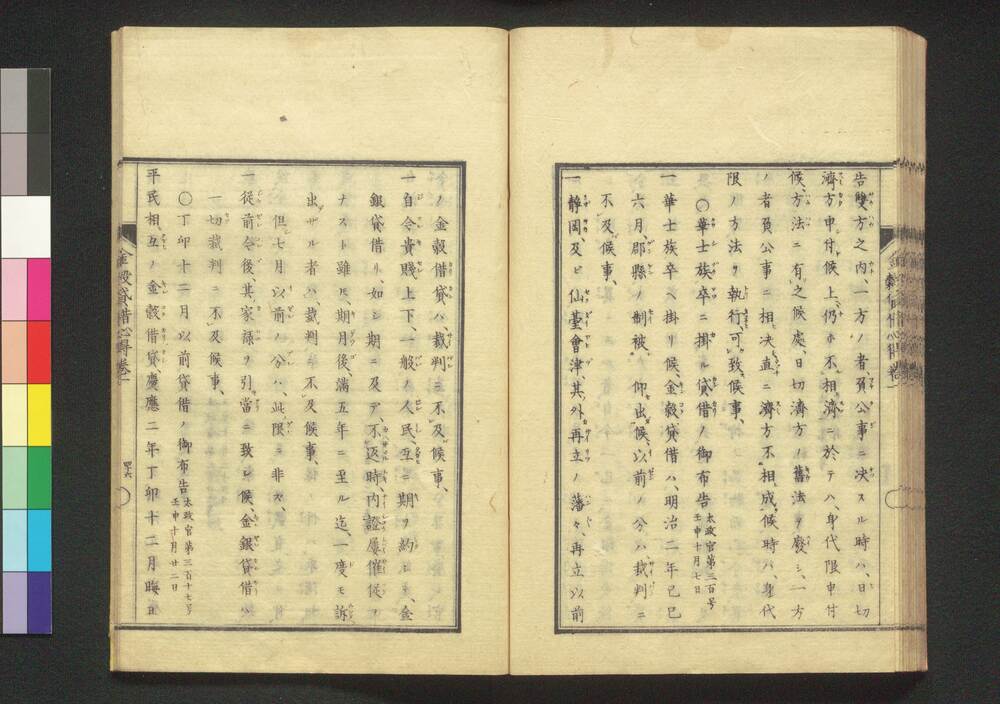 告雙方之内、一方ノ者、負公事ニ決スル時ハ、日切
濟方申付候上、仍亦不相濟ニ於テハ、身代限申付
候、方法ニ有之候處、日切濟方ノ舊法ヲ廢シ、一方
ノ者負公事ニ相決、直ニ濟方不相成候時ハ、身代
限ノ方法ヲ執行可致候事、
○華士族卒ニ掛ル貸借ノ御布告 太政官第三百号 壬申十月七日
一華士族卒ヘ掛リ候、金穀貸借ハ、明治二年己巳
六月、郡縣ノ制被仰出候、以前ノ分ハ、裁判ニ
不及候事、
一静岡、及ビ仙臺會津、其外再立ノ藩々、再立以前
ノ金穀借貸ハ、裁判ニ不及候事、
一自今貴賤上下、一般ノ人民、互ニ期ヲ約セシ、金
銀貸借リ、如シ期ニ及テ、不返時、内證屢催促ヲ
ナスト雖ㇳモ、期月後、滿五年ニ至ル迄、一度モ訴
出ザル者ハ、裁判ニ不及候事、
但七月以前ノ分ハ、此限ニ非ズ、
一從前令後其家禄ヲ引當ニ致シ候、金銀貸借ハ、
一切裁判ニ不及候事、
○丁卯十二月以前貸借ノ御布告 太政官第三百十七号 壬申十月廿二日
平民相互ノ金穀借貸、慶應二年丁卯十二月晦日
金穀貸借心得卷一
四十六